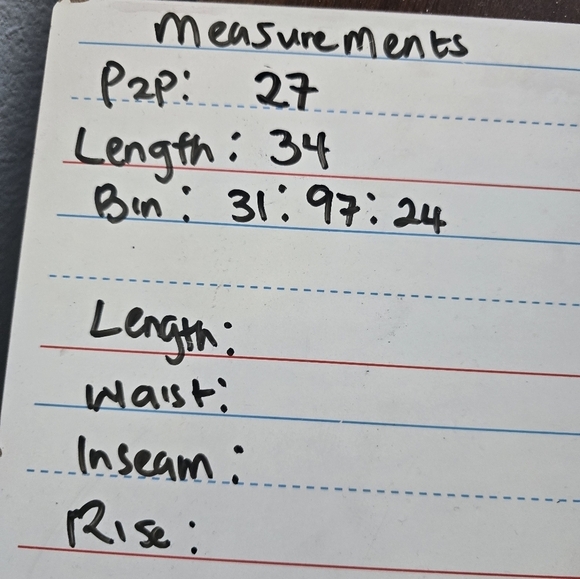 Measurements
P2P: 27
Length: 34
Bin: 31:97:24
Length:
Waist:
Inseam:
Rise: